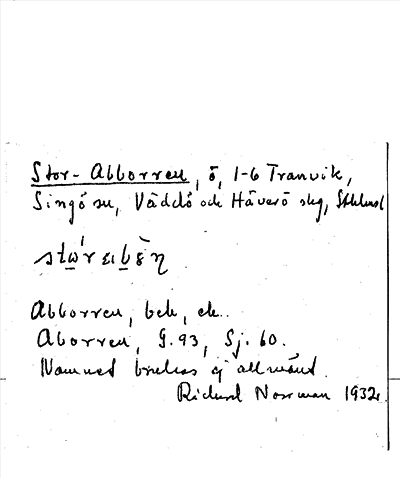 Stor-Abborren, ö, 1-6 Tranvik,
Singö sn, Väddö och Häverö skg, Sthlms l
Abborren, bek, ek..
Aborren, G.93, Sj. 60.
Namnet brukas ej allmänt.
Rickard Norrman 1932.